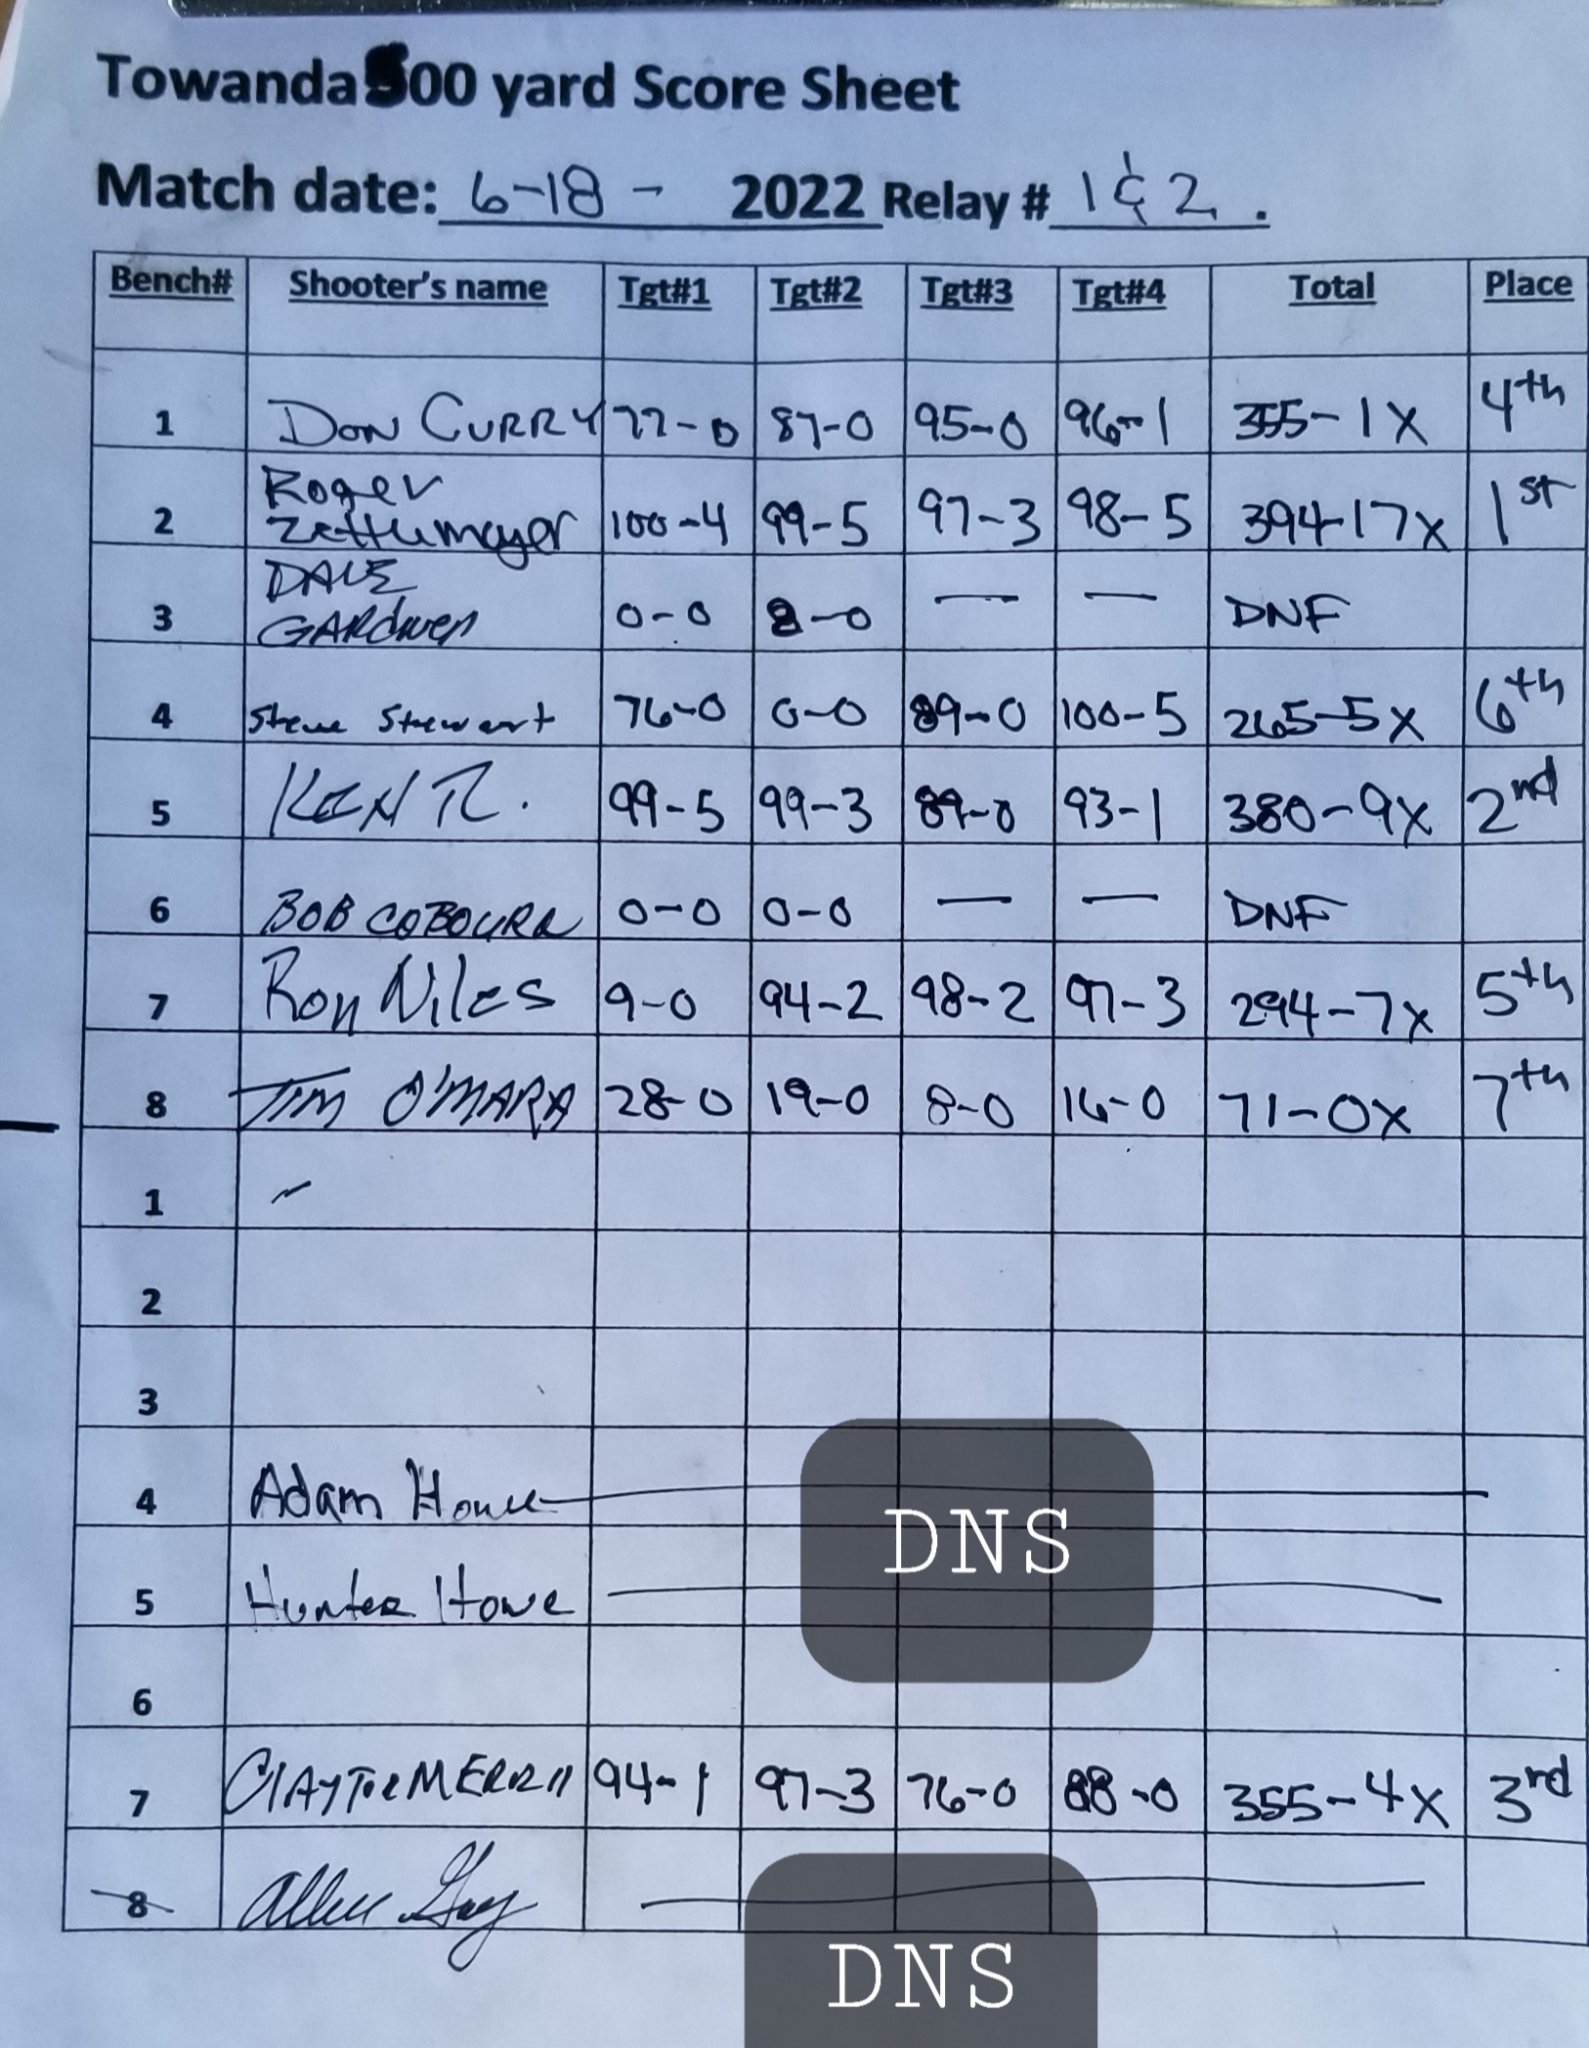 Towanda 500 yard Score Sheet
Match date: 6-18 - 2022 Relay # 1 & 2 .
Bench# Shooter's name Tgt#1 Tgt#2 Tgt#3 Tgt#4 Total Place
1 DON CURRY 77-0 87-0 95-0 96-1 355-1X 4th
2 Roger Zettlemoyer 100-4 99-5 97-3 98-5 394-17X 1st
3 DALE GARDNER 0-0 8-0 — — DNF
4 Steve Stewart 76-0 0-0 89-0 100-5 265-5X 6th
5 KEN R. 99-5 99-3 89-0 93-1 380-9X 2nd
6 BOB COBOURN 0-0 0-0 — — DNF
7 Ron Niles 9-0 94-2 98-2 97-3 294-7X 5th
8 TIM O'MARA 28-0 19-0 8-0 16-0 71-0X 7th
1
2
3
4 Adam Howe
DNS
5 Hunter Howe
6
7 CLAYTON MERRILL 94-1 97-3 76-0 88-0 355-4X 3rd
8 Allen Gay
DNS